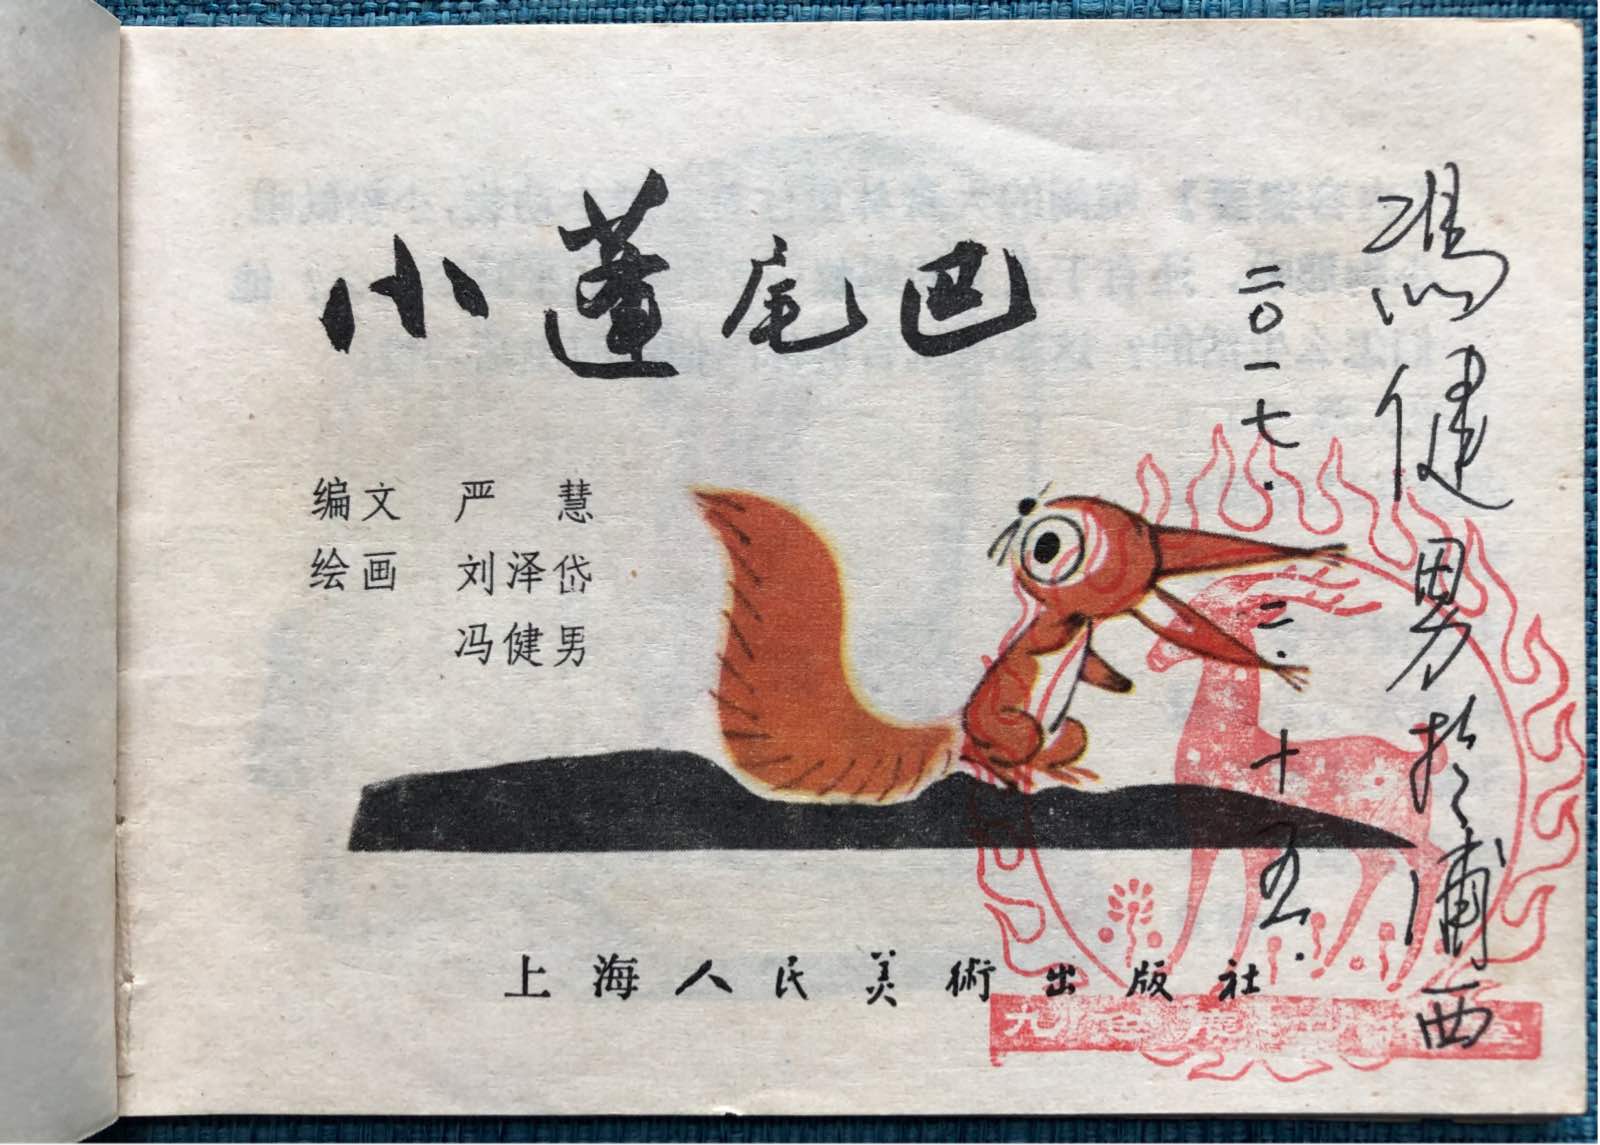 小蓬尾巴
编文 严 慧
绘画 刘泽岱
冯健男
上海人民美術出版社
馮健男於浦西
二〇一七.二.十五.